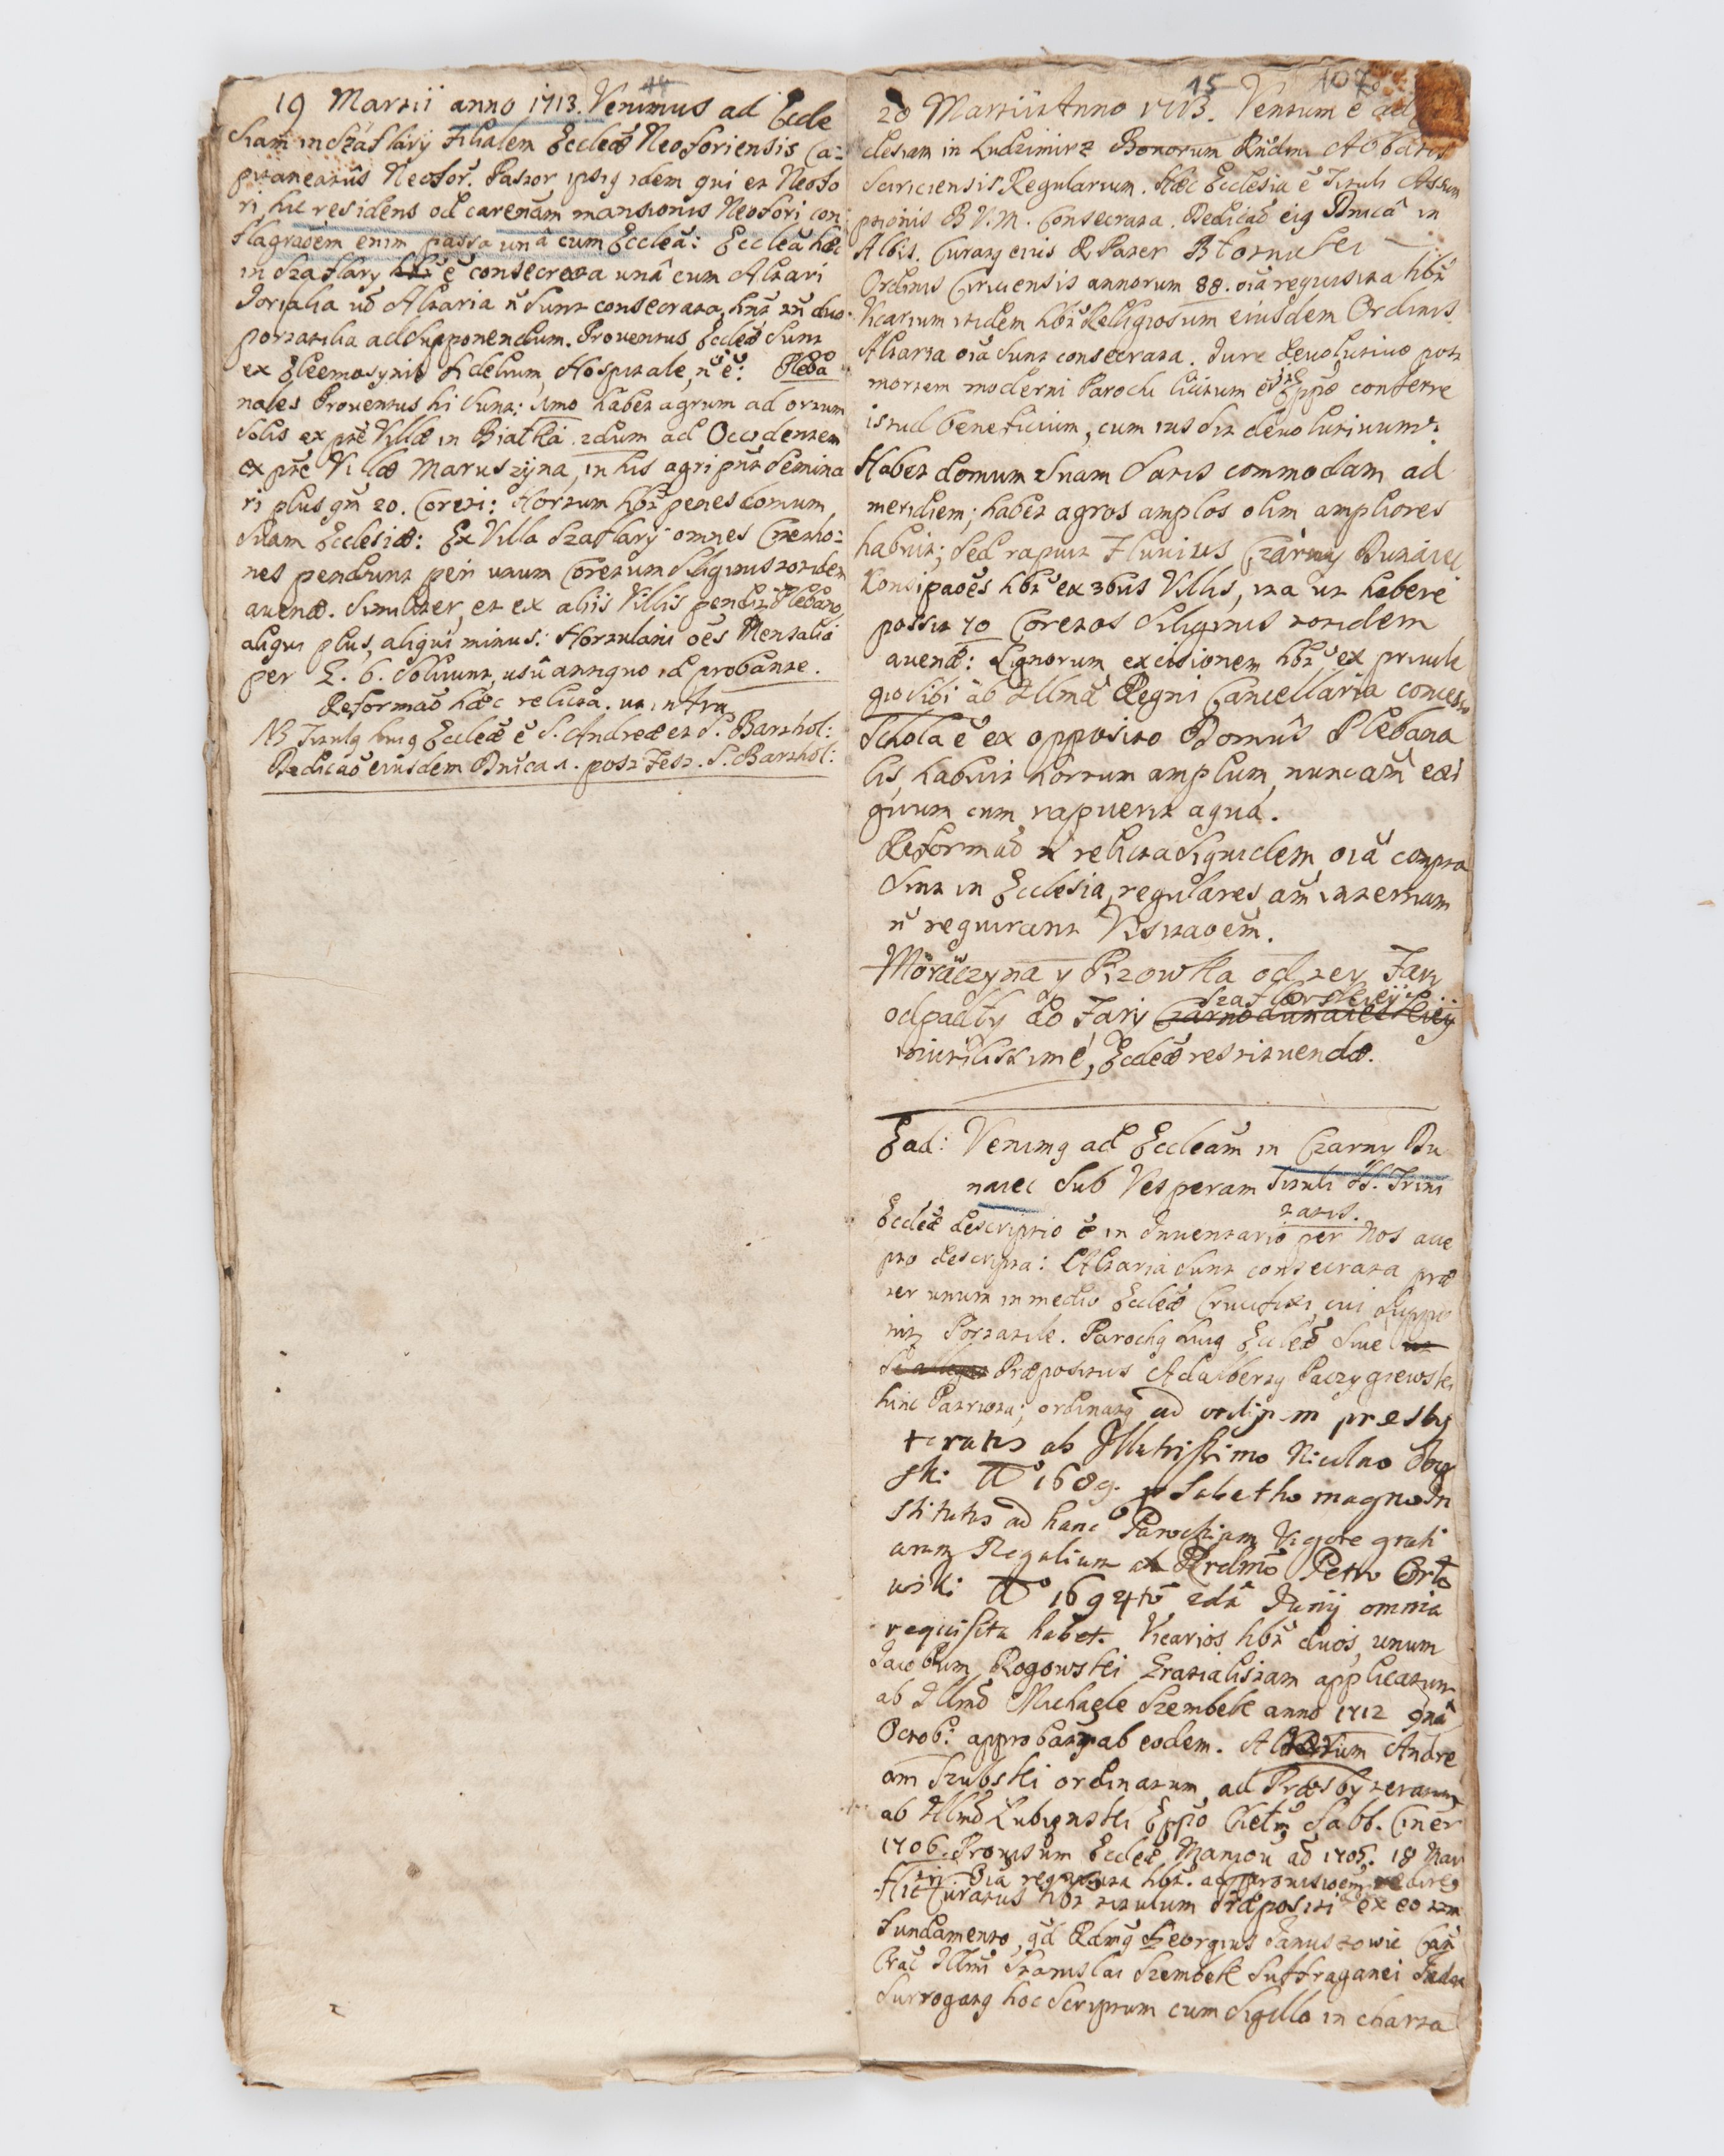 18
19 Martii anno 1713. Venimus ad Eccle
siam in Szaflary Filialem Eccleæ Neoforiensis Ca=
pitaneatûs Neofor. Pastor ipsig idem qui et Neofo
ri, hic residens ob carentiam mansionis Neofori con
flagraõem enim passa unâ cum Ecclea: Ecclea hæc
in Szaflary ẽ consecrata unâ cum Altari
Altaria ñ sunt consecrata, hñt tñ duo
portatilia ad supponendum. Proventus Eccleæ sunt
ex Eleemosynis fidelium, Hospitale ñ ẽ: Pleba
nales Proventus hi sunt: 1mo habet agrum ad ortum
Solis ex pte Villæ in Białka 2dum ad Occidentem
ex pte Villæ Maruszyna, in his agri pñt semina
ri plus qm 20. Coreti: Hortum hbt penes domum
suam Ecclesiæ: Ex Villa Szaflary omnes Cmetho=
nes pendunt per unum Coretum Siliginis totidem
avenæ. Similiter, et ex aliis Villis pendit Plebano
aliqui plus, aliqui minus: Hortulani oẽs Mensalia
per g. 6. solvunt, usû antiquo id probante.
Reformaõ hæc relicta. ut infra
NB Titulg huig Eccleæ ẽ S. Andreæ et S. Barthol:
Dedicaõ eiusdem Dñica 1. post Fest. S. Barthol:
15 107
20 Martii Anno 1713. Ventum ẽ ad
clesiam in Ludzimirz Bonorum Rñdmi Abbatis
Sciriciensis Regularium. Hæc Ecclesia ẽ Tituli Assum
ptionis B.V.M. Consecrata. Dedicaõ eig Dnicâ in
Albis. Curatg eius R. Pater
Ordinis Ciriciensis annorum 88. oĩa requisita hbt
Vicarium itidem hbt Religiosum eiusdem Ordinis.
Altaria oĩa sunt consecrata. Jure devolutivo post
mortem moderni Parochi licitum ẽ Eppo conferre
istud beneficium, cum ius sit devolutivum.
Habet domum suam satis commodam ad
meridiem; habet agros amplos olim ampliores
habuit; sed rapuit Fluvius Czarny Dunaiec
Konsipaoẽs hbt ex 3bus Villis, ita ut habere
possit 70 Coretos Siliginis totidem
avenæ: Lignorum excisionem hbt ex privile
gio sibi ab Illma Regni Cancellaria concesso
Schola ẽ ex opposito Domûs Plebana
lis, habuit hortum amplum, nunc aũt exi
guum cum rapuerit aqua.
Reformaõ ñ relicta siquidem oĩa compta
sint in Ecclesia, regulares aũt internam
ñ requirant Visitaoẽm.
Moraczyna y Rzowka od tey Fary
Szaflarskieÿ
odpadły do Fary Czarnodunaieskiey
iniustissimè, Eccleæ restituendæ.
Ead: Venimg ad Eccleam in Czarny Du
naiec sub Vesperam Tituli SS. Trini
tatis.
Eccleæ descriptio ẽ in Inventario per Nos acce
pto descripta: Altaria sunt consecrata præ
ter unum in medio Eccleæ Crucifixi, cui suppo
nitg Portatile. Parochg huig Eccleæ sive
Præpositus Adalbertg Paczygrewski
hinc Patriota; ordinatg ad ordinem presby
teratus ab Illustrissimo Nicolao Oby
ski Aõ 1689. Sabetho magno In
stitutus ad hanc Parochiam Vigore grati
arum Regalium ab Rrdmo Petro
wski Aõ 1694to 2dâ Junij omnia
requisita habet. Vicarios hbt duos, unum
Jacobum Rogowski applicatum
ab Illmo Michaele Szembek anno 1712 9nâ
Octob: approbatg ab eodem. Alterum Andre
am Szubski ordinatum ad Præsbyteratum
ab Illmo Łubienski Eppo Sabb. Ciner
1706. Provisum Eccleæ ad 1705. 18 Mar
tii. Oĩa requisita hbt.
Hic Curatus hbt titulum Præpositi ex eo
fundamento, qd Rdmg Georgius Januszowic Can
Crac Illmi Stanislai Szembek Suffraganei
Surrogatg hoc scriptum cum Sigillo in charta